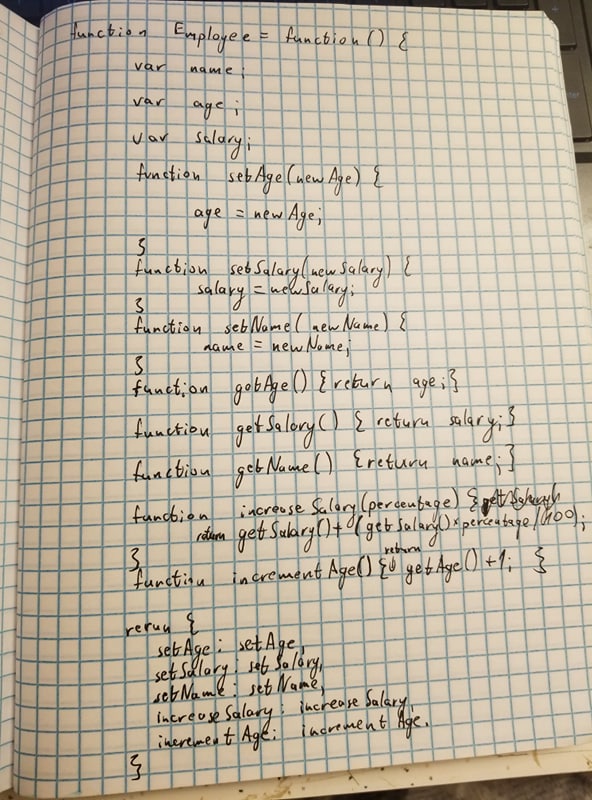 function Employee = function() {
var name;
var age;
var salary;
function setAge(newAge) {
age = newAge;
}
function setSalary(newSalary) {
salary = newSalary;
}
function setName(newName) {
name = newName;
}
function getAge() {return age;}
function getSalary() { return salary;}
function getName() {return name;}
function increase Salary(percentage) {
return getSalary()+(getSalary()*percentage/100);
}
function increment Age() { return getAge()+1; }
rerun {
setAge: setAge,
setSalary: setSalary,
setName: setName,
increase Salary: increase Salary,
increment Age: increment Age.
}